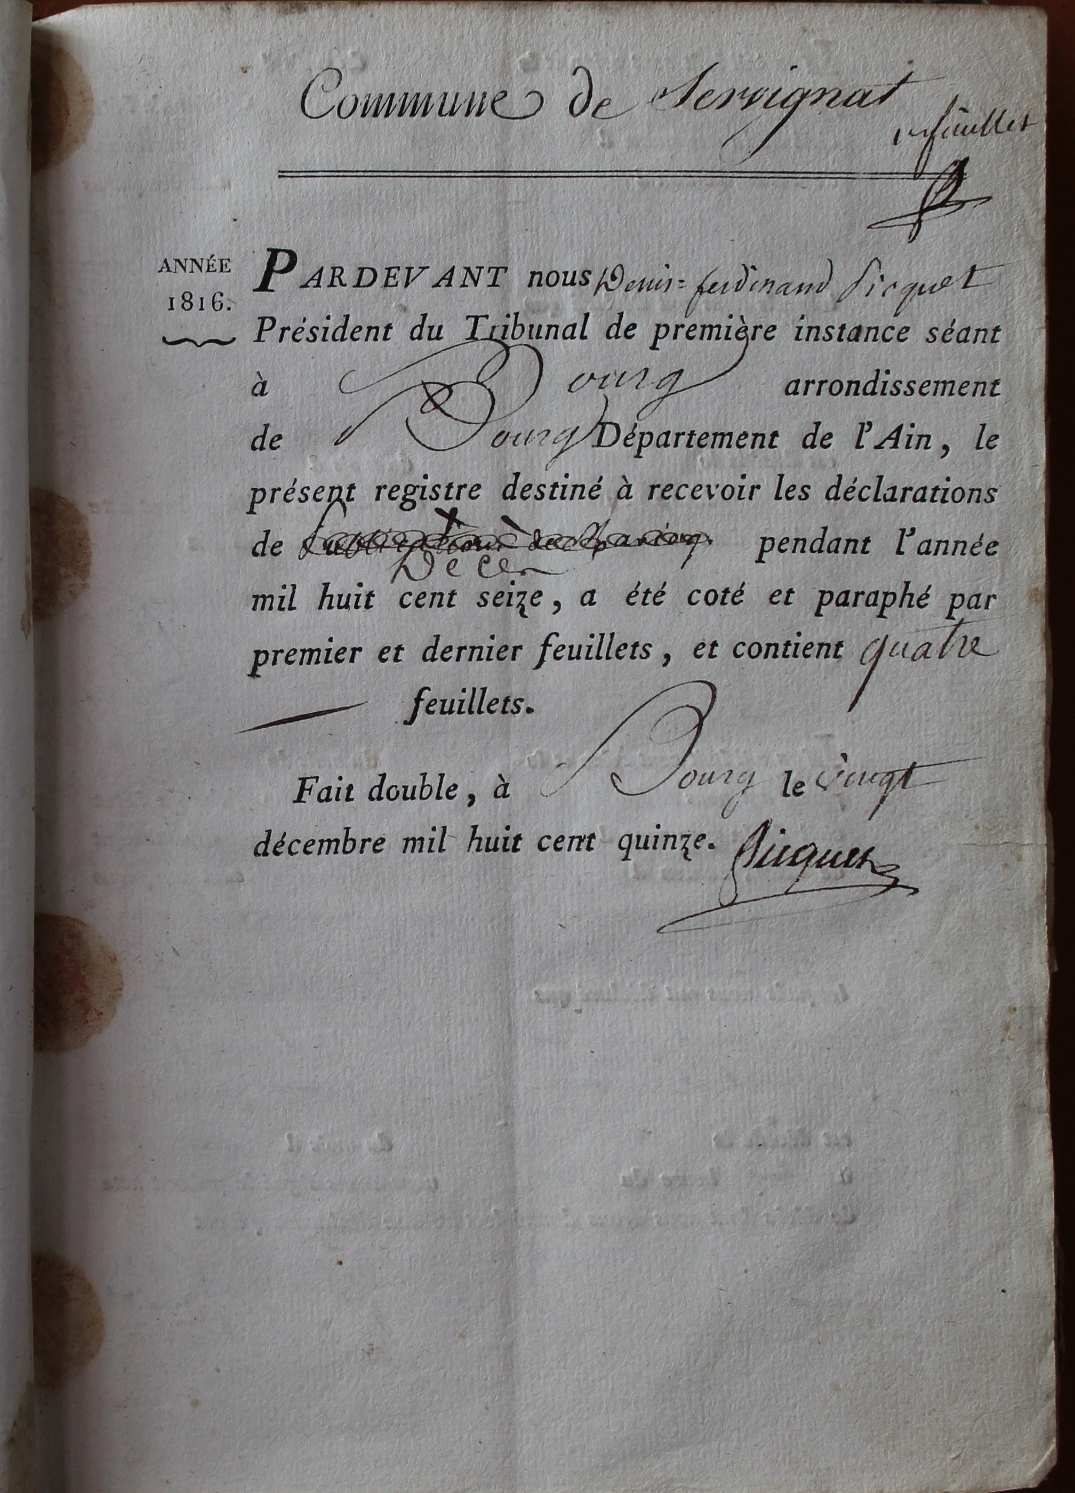 Commune de Servignat
feuillet
ANNÉE
1816.
PARDEVANT nous Denis-ferdinand Picquet
Président du Tribunal de première instance séant
à Bourg arrondissement
de Bourg Département de l'Ain, le
présent registre destiné à recevoir les déclarations
de publications de mariag. pendant l'année
Décès
mil huit cent seize, a été coté et paraphé par
premier et dernier feuillets, et contient quatre
feuillets.
Fait double, à Bourg le vingt
décembre mil huit cent quinze. Picquet